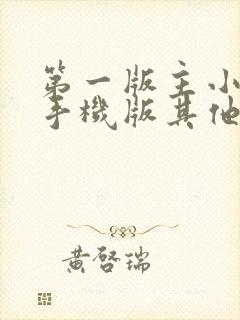 第一版主小
手機版其他
黃啓瑞